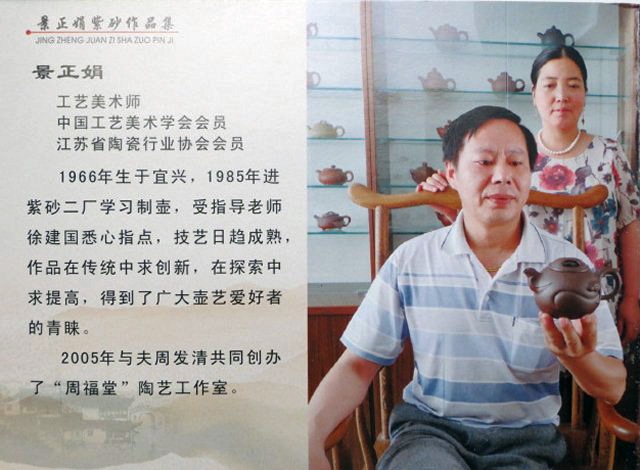 景正娟紫砂作品集
JING ZHENG JUAN ZI SHA ZUO PIN JI
景正娟
工艺美术师
中国工艺美术学会会员
江苏省陶瓷行业协会会员
1966年生于宜兴，1985年进
紫砂二厂学习制壶，受指导老师
徐建国悉心指点，技艺日趋成熟，
作品在传统中求创新，在探索中
求提高，得到了广大壶艺爱好者
的青睐。
2005年与夫周发清共同创办
了“周福堂”陶艺工作室。